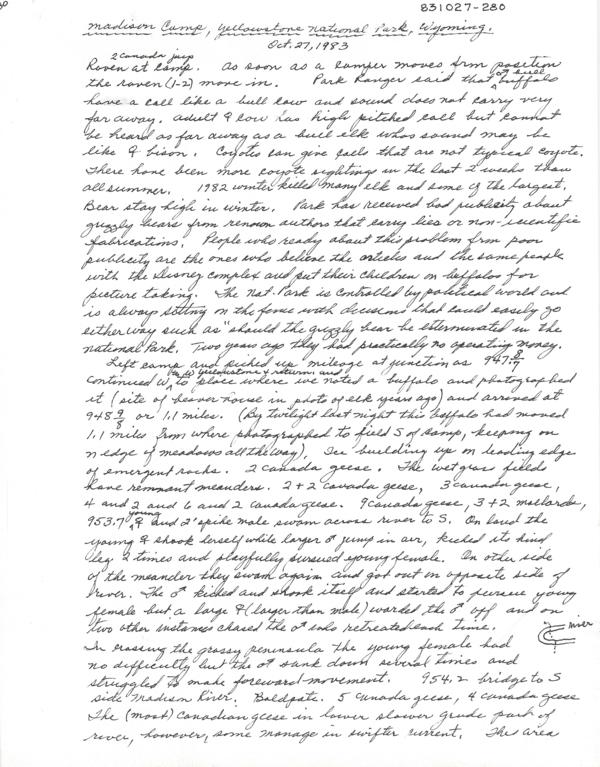 831027-280
Madison Camp, Yellowstone National Park, Wyoming.
Oct. 27, 1983
2 Canada jays
Raven at camp. As soon as a camper moves from position
of bull
the raven (1-2) move in. Park Ranger said that buffalo
have a call like a bull cow and sound does not carry very
far away. Adult ♀ cow has high pitched call but cannot
be heard as far away as a bull elk whos sound may be
like ♀ bison. Coyotes can give calls that are not typical coyote.
There have been more coyote sightings in the last 2 weeks than
all summer. 1982 winter killed many elk and some of the largest.
Bear stay high in winter. Park has received bad publicity about
grizzly bears from renown authors that carry lies or non-scientific
fabrications. People who ready about this problem from poor
publicity are the ones who believe the articles and the same people
with the Disney complex and put their children on buffalos for
picture taking. The Nat. Park is controlled by political world and
is always sitting on the fence with decisions that could easily go
either way such as "should the grizzly bear be exterminated in the
national Park. Two years ago they had practically no operating money.
Left camp and picked up mileage at junction as 947.8/9
(to W. Yellowstone & return) and
continued W. to place where we noted a buffalo and photographed
it (site of beaver house in photo of elk years ago) and arrived at
948 9/8 or 1.1 miles. (By twilight last night this buffalo had moved
1.1 miles from where photographed to field S of camp, keeping on
N edge of meadows all the way). Ice building up on leading edge
of emergent rocks. 2 Canada geese. The wet grass fields
have remnant meanders. 2+2 Canada geese, 3 Canada geese,
4 and 2 and 6 and 2 Canada geese. 9 Canada geese, 3+2 mallards,
young
953.7 ♀ and 2° spike male swam across river to S. On land the
young ♀ shook herself while larger ♂ jump in air, kicked its hind
leg 2 times and playfully pursued young female. On other side
of the meander they swam again and got out on opposite side of
river. The ♂ kicked and shook itself and started to pursue young
female but a large ♀ (larger than male) warded the ♂ off and on
two other instances chased the ♂ who retreated each time.
river
In crossing the grassy peninsula the young female had
no difficulty but the ♂ sank down several times and
struggled to make foreward movement. 954.2 bridge to S
side Madison River. Baldpate. 5 Canada geese, 4 Canada geese
The (most) Canadian geese in lower slower grade part of
river, however, some manage in swifter current. This area